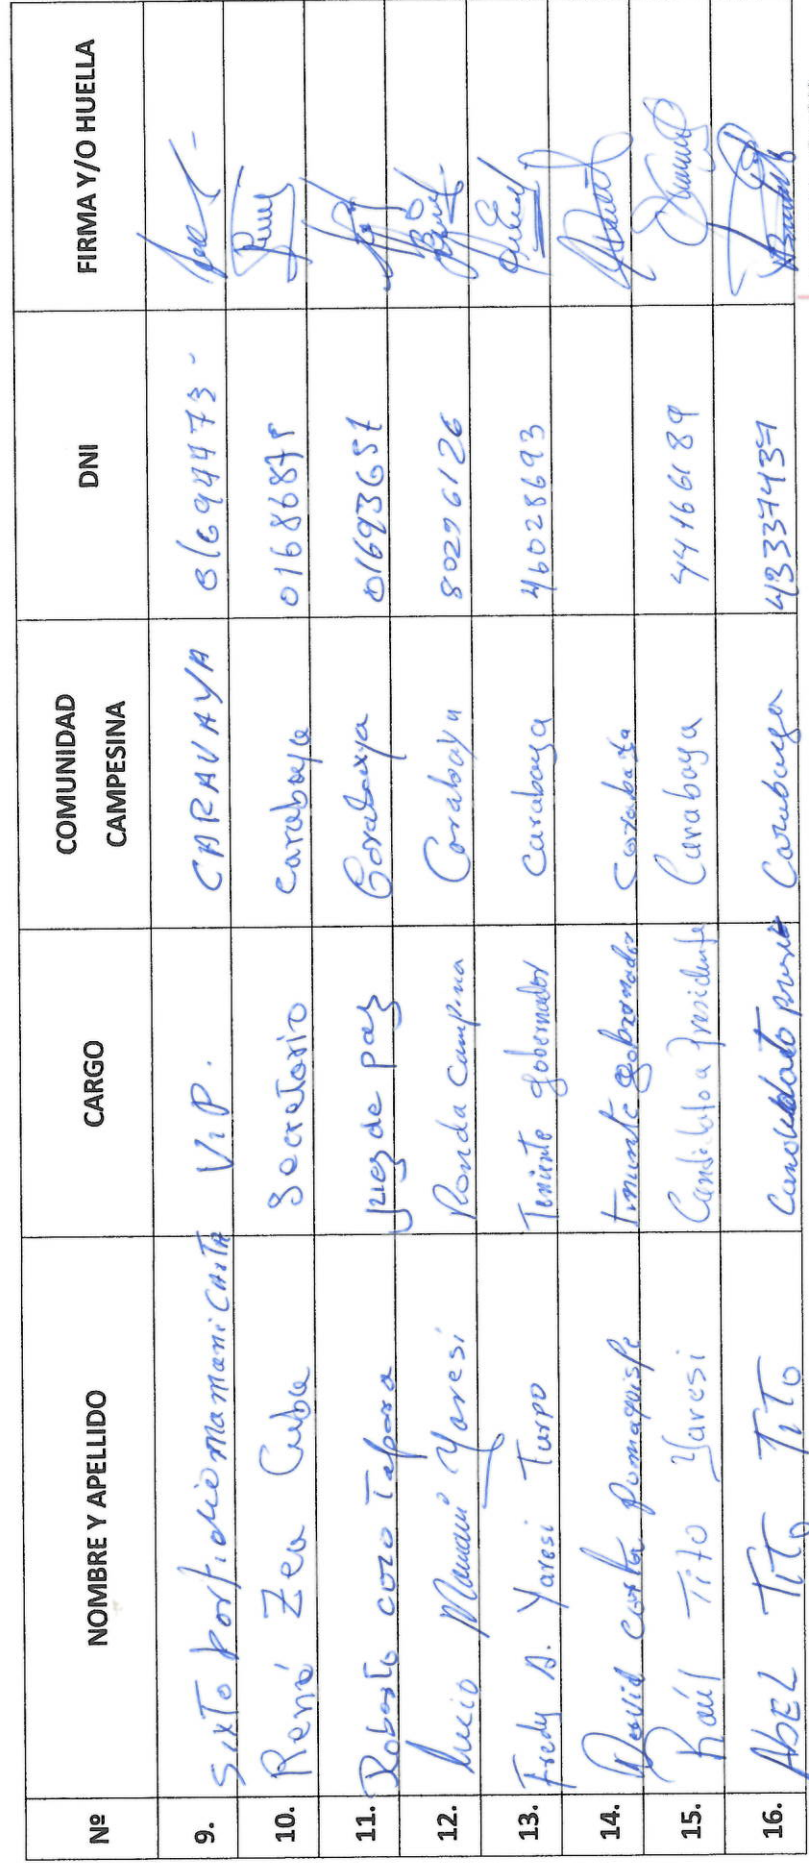 Nº NOMBRE Y APELLIDO CARGO COMUNIDAD CAMPESINA DNI FIRMA Y/O HUELLA
9. Sixto Porfidio Mamani V.P. CARAVAYA 01694473-
10. René Zea Cuba Secretario Carabaya
11. Roberto Juez de paz Carabaya 01693657
12. Lucio Mamani Yaresi Ronda Campina Carabaya 80296126
13. Fredy A. Yaresi Turpo Teniente gobernador Carabaya 46028693
14. David Pomaquispe gobernador Carabaya
15. Raúl Tito Yaresi Candidato a presidente Carabaya 44166189
16. ABEL TiTo TiTo Carabaya 43337437